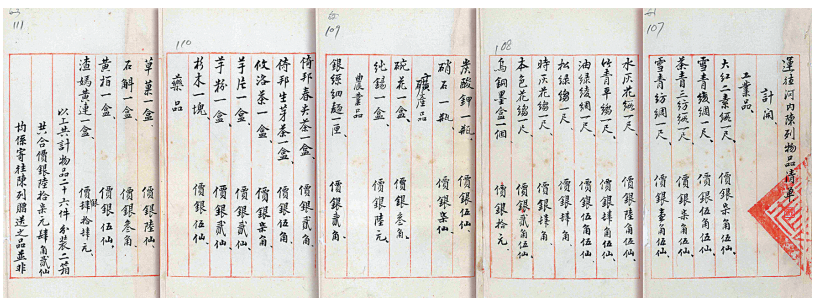 107
運往河內陳列物品清單
計開
工業品
大紅二景緞一尺、價銀柒角伍仙、
雪青緞綢一尺、價銀伍角伍仙、
茶青二紡緞一尺、價銀柒角伍仙、
雪青紡綢一尺、價銀壹角伍仙、
108
水灰花縐一尺、價銀陸角伍仙、
竹青單縐一尺、價銀伍角伍仙、
油綠綾綢一尺、價銀伍角伍仙、
松綠縐一尺、價銀肆角
時灰花縐一尺、價銀肆角
本色花縐一尺、價銀貳角伍仙、
烏銅墨盒一個、價銀拾元、
109
炭酸鉀一瓶、價銀伍仙、
硝石一瓶、價銀柒仙
礦產品
硫花一盒、價銀叁角、
純錫一盒、價銀陸元、
農業品
銀絲細麵一匣、價銀貳角、
110
倚邦春尖茶一盒、價銀貳角、
倚邦生芽茶一盒、價銀伍角、
攸洛茶一盒、價銀柒角
芋片一盒、價銀貳仙
芋粉一盒、價銀貳仙
杉木一塊、價銀伍仙、
藥品
111
草菓一盒、價銀伍仙、
石斛一盒、價銀叁角
黃栢一盒、價銀伍仙
渣媽黃連一盒、價銀拾肆元、
以上共計物品二十六件分裝二箱
共合價銀陸拾柒元肆角貳仙
均係寄往陳列贈送之品並非